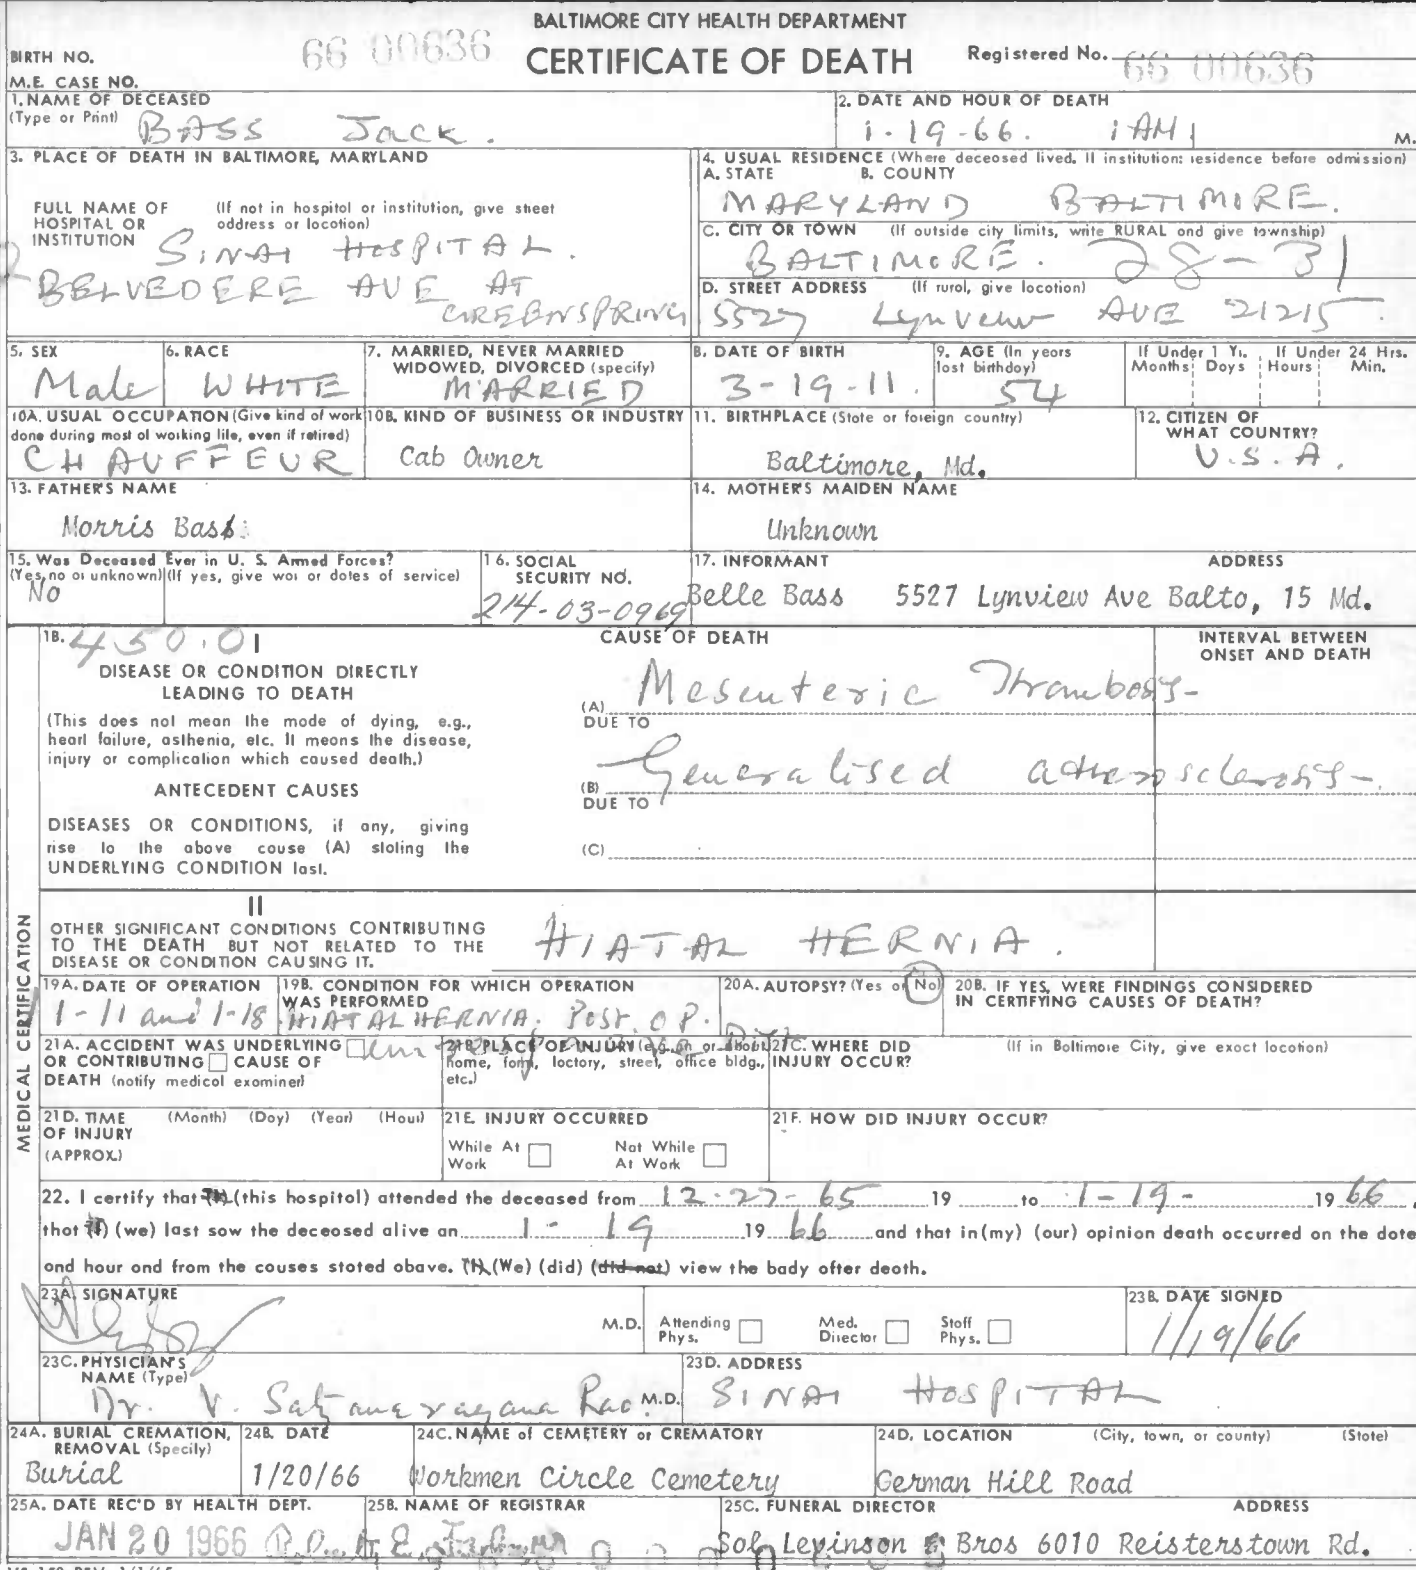 BALTIMORE CITY HEALTH DEPARTMENT
BIRTH NO. 66 00636 CERTIFICATE OF DEATH Registered No. 66 00636
M.E. CASE NO.
1. NAME OF DECEASED
(Type or Print) BASS Jack.
2. DATE AND HOUR OF DEATH
1-19-66. 1 AM M.
3. PLACE OF DEATH IN BALTIMORE, MARYLAND
FULL NAME OF HOSPITAL OR INSTITUTION
(If not in hospital or institution, give street address or location)
SINAI HOSPITAL.
BELVEDERE AVE AT
GREENSPRING
4. USUAL RESIDENCE (Where deceased lived. If institution: residence before admission)
A. STATE B. COUNTY
MARYLAND BALTIMORE.
C. CITY OR TOWN (If outside city limits, write RURAL and give township)
BALTIMORE. 28-31
D. STREET ADDRESS (If rural, give location)
5527 Lynview AVE 21215
5. SEX
Male
6. RACE
WHITE
7. MARRIED, NEVER MARRIED
WIDOWED, DIVORCED (specify)
MARRIED
8. DATE OF BIRTH
3-19-11.
9. AGE (In years
last birthday)
54
If Under 1 Yr. If Under 24 Hrs.
Months Days Hours Min.
10A. USUAL OCCUPATION (Give kind of work
done during most of working life, even if retired)
CHAUFFEUR
10B. KIND OF BUSINESS OR INDUSTRY
Cab Owner
11. BIRTHPLACE (State or foreign country)
Baltimore, Md.
12. CITIZEN OF
WHAT COUNTRY?
U.S.A.
13. FATHER'S NAME
Morris Bass
14. MOTHER'S MAIDEN NAME
Unknown
15. Was Deceased Ever in U. S. Armed Forces?
(Yes, no or unknown) (If yes, give war or dates of service)
No
16. SOCIAL
SECURITY NO.
214-03-0969
17. INFORMANT ADDRESS
Belle Bass 5527 Lynview Ave Balto, 15 Md.
18. 450.0 I
CAUSE OF DEATH
INTERVAL BETWEEN
ONSET AND DEATH
DISEASE OR CONDITION DIRECTLY
LEADING TO DEATH
(This does not mean the mode of dying, e.g.,
heart failure, asthenia, etc. It means the disease,
injury or complication which caused death.)
ANTECEDENT CAUSES
DISEASES OR CONDITIONS, if any, giving
rise to the above cause (A) stating the
UNDERLYING CONDITION last.
(A) Mesenteric Thrombosis-
DUE TO
(B) Generalised atherosclerosis-
DUE TO
(C)
MEDICAL CERTIFICATION
II
OTHER SIGNIFICANT CONDITIONS CONTRIBUTING
TO THE DEATH BUT NOT RELATED TO THE
DISEASE OR CONDITION CAUSING IT.
HIATAL HERNIA.
19A. DATE OF OPERATION
1-11 and 1-18
19B. CONDITION FOR WHICH OPERATION
WAS PERFORMED
HIATAL HERNIA. Post. OP.
20A. AUTOPSY? (Yes or No)
20B. IF YES, WERE FINDINGS CONSIDERED
IN CERTIFYING CAUSES OF DEATH?
21A. ACCIDENT WAS UNDERLYING
OR CONTRIBUTING CAUSE OF
DEATH (notify medical examiner)
21B. PLACE OF INJURY (e.g., in or about
home, farm, factory, street, office bldg.,
etc.)
21C. WHERE DID
INJURY OCCUR?
(If in Baltimore City, give exact location)
21D. TIME (Month) (Day) (Year) (Hour)
OF INJURY
(APPROX.)
21E. INJURY OCCURRED
While At Work Not While At Work
21F. HOW DID INJURY OCCUR?
22. I certify that (I) (this hospital) attended the deceased from 12-27-65 19 to 1-19- 19 66,
that (I) (we) last saw the deceased alive on 1-19 19 66 and that in (my) (our) opinion death occurred on the date
and hour and from the causes stated above. (I) (We) (did) (did not) view the body after death.
23A. SIGNATURE
M.D.
Attending Phys. Med. Director Staff Phys.
23B. DATE SIGNED
1/19/66
23C. PHYSICIAN'S
NAME (Type)
Dr. V. Satyanarayana Rao. M.D.
23D. ADDRESS
SINAI HOSPITAL
24A. BURIAL CREMATION,
REMOVAL (Specify)
Burial
24B. DATE
1/20/66
24C. NAME of CEMETERY or CREMATORY
Workmen Circle Cemetery
24D. LOCATION (City, town, or county) (State)
German Hill Road
25A. DATE REC'D BY HEALTH DEPT.
JAN 20 1966
25B. NAME OF REGISTRAR
25C. FUNERAL DIRECTOR ADDRESS
Sol Levinson & Bros 6010 Reisterstown Rd.